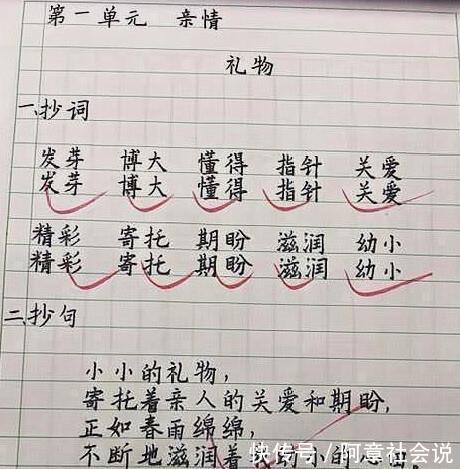 第一单元 亲情
礼物
一、抄词
发芽 博大 懂得 指针 关爱
发芽 博大 懂得 指针 关爱
精彩 寄托 期盼 滋润 幼小
精彩 寄托 期盼 滋润 幼小
二、抄句
小小的礼物，
寄托着亲人的关爱和期盼，
正如春雨绵绵，
不断地滋润着我幼小的心田。
快传号／阿意社会说